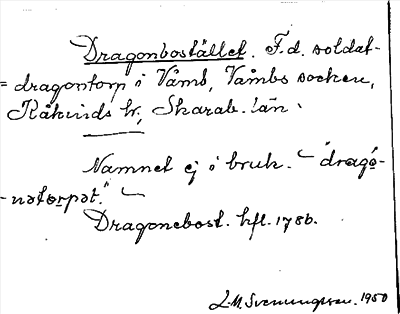 Dragonbostället. F.d. soldat-
= dragontorp i Våmb, Våmbs socken,
Kåkinds hd, Skarab. län.
Namnet ej i bruk. – "dragó-
-nətorpət." –
Dragonebost. hfl. 1786.
L.M. Svenungsson. 1950